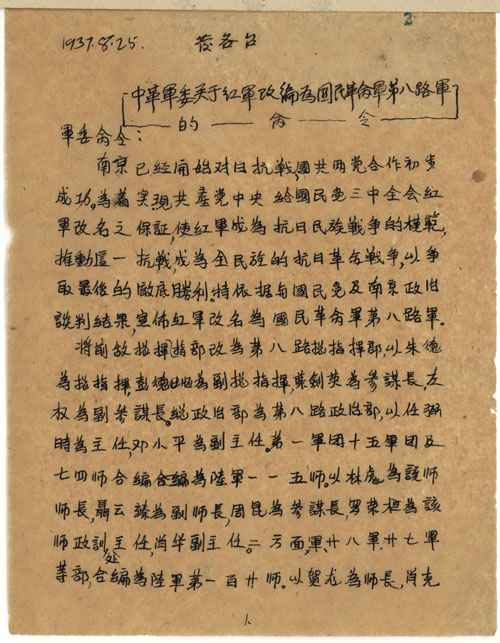 2
1937.8.25. 發各台
中革軍委关于紅軍改編為國民革命軍第八路軍
的——命——令
軍委命令：
南京已經開始对日抗战,國共両党合作初步
成功。為着实現共產党中央給國民党三中全会紅
軍改名之保証,使紅軍成為抗日民族战争的模範,
推動這一抗战,成為全民族的抗日革命战争,以争
取最後的徹底勝利。特依据与國民党及南京政治
談判結果,宣佈紅軍改名為國民革命軍第八路軍。
將前敌总指揮部改為第八路总指揮部,以朱德
為总指揮,彭德怀為副总指揮,葉劍英為參謀長,左
权為副參謀長。总政治部為第八路政治部,以任弼
時為主任,邓小平為副主任。第一軍团十五軍团及
七四师合編合編為陸軍一一五师。以林彪為該师
师長,聶云臻為副师長,周昆為參謀長,罗荣桓為該
师政訓处主任,肖华副主任。二方面軍,廿八軍,廿七軍
等部,合編為陸軍第一百廿师。以贺龙為师長,肖克
1.